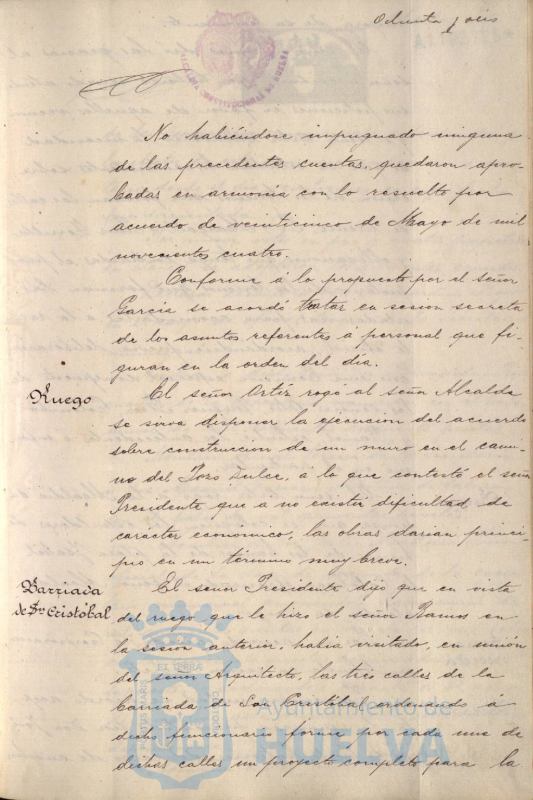 Ochenta y seis
ALCALDIA CONSTITUCIONAL DE HUELVA
No habiéndose impugnado ninguna
de las precedentes cuentas, quedaron apro-
badas en armonía con lo resuelto por
acuerdo de veinticinco de Mayo de mil
novecientos cuatro.
Conforme á lo propuesto por el señor
García se acordó tratar en sesion secreta
de los asuntos referentes á personal que fi-
guran en la orden del día.
Ruego
El señor Ortíz rogó al señor Alcalde
se sirva disponer la ejecucion del acuerdo
sobre construccion de un muro en el cami-
no del Pozo Dulce, á lo que contestó el señor
Presidente que a no existir dificultad de
caracter económico, las obras darian princi-
pio en un término muy breve.
Barriada
de Sn Cristóbal
El señor Presidente dijo que en vista
del ruego que le hizo el señor Ramos en
la sesion anterior, había visitado, en unión
del señor Arquitecto, las tres calles de la
barriada de San Cristóbal ordenando á
dicho funcionario forme por cada una de
dichas calles un proyecto completo para la
Ayuntamiento de
HUELVA